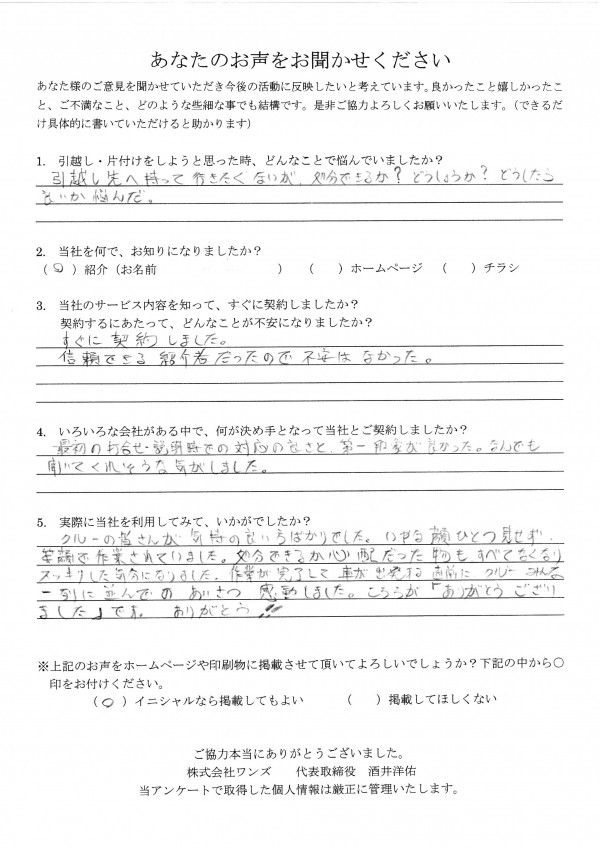 あなたのお声をお聞かせください
あなた様のご意見を聞かせていただき今後の活動に反映したいと考えています。良かったこと嬉しかったこ
と、ご不満なこと、どのような些細な事でも結構です。是非ご協力よろしくお願いいたします。（できるだ
け具体的に書いていただけると助かります）
1. 引越し・片付けをしようと思った時、どんなことで悩んでいましたか？
引越し先へ持って行きたくないが、処分できるか？どうしようか？どうしたら
良いか悩んだ。
2. 当社を何で、お知りになりましたか？
（○）紹介（お名前　　　　　　　　　）（　）ホームページ（　）チラシ
3. 当社のサービス内容を知って、すぐに契約しましたか？
契約するにあたって、どんなことが不安になりましたか？
すぐに契約しました。
信頼できる紹介者だったので不安はなかった。
4. いろいろな会社がある中で、何が決め手となって当社とご契約しましたか？
最初の打合せ・説明時での対応の良さと、第一印象が良かった。なんでも
聞いてくれそうな気がしました。
5. 実際に当社を利用してみて、いかがでしたか？
クルーの皆さんが気持の良い方ばかりでした。いやな顔ひとつ見せず、
笑顔で作業されていました。処分できるか心配だった物も、すべてなくなり
スッキリした気分になりました。作業が完了して車が出発する直前にクルー
一列に並んでのあいさつ感動しました。こちらが「ありがとうござい
ました」です。ありがとう!!
※上記のお声をホームページや印刷物に掲載させて頂いてよろしいでしょうか？下記の中から○
印をお付けください。
（○）イニシャルなら掲載してもよい　　（　）掲載してほしくない
ご協力本当にありがとうございました。
株式会社ワンズ　　代表取締役　酒井洋佑
当アンケートで取得した個人情報は厳正に管理いたします。